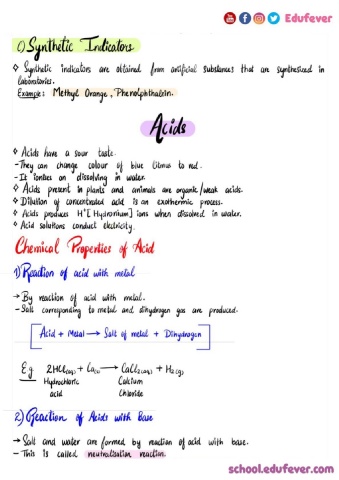 Edufever
i) Synthetic Indicators
❖ Synthetic indicators are obtained from artificial substances that are synthesized in
laboratories.
Example: Methyl Orange, Phenolphthalein.
Acids
❖ Acids have a sour taste.
- They can change colour of blue litmus to red.
- It ionises on dissolving in water.
❖ Acids present in plants and animals are organic/weak acids.
❖ Dilution of concentrated acid is an exothermic process.
❖ Acids produces H⁺ [Hydronium] ions when dissolved in water.
❖ Acid solutions conduct electricity.
Chemical Properties of Acid
1) Reaction of acid with metal
→ By reaction of acid with metal.
- Salt corresponding to metal and dihydrogen gas are produced.
[Acid + Metal → Salt of metal + Dihydrogen]
E.g 2HCl(aq) + Ca(s) → CaCl₂(aq) + H₂(g)
Hydrochloric Calcium
acid Chloride
2) Reaction of Acids with Base
→ Salt and water are formed by reaction of acid with base.
- This is called neutralisation reaction.
school.edufever.com